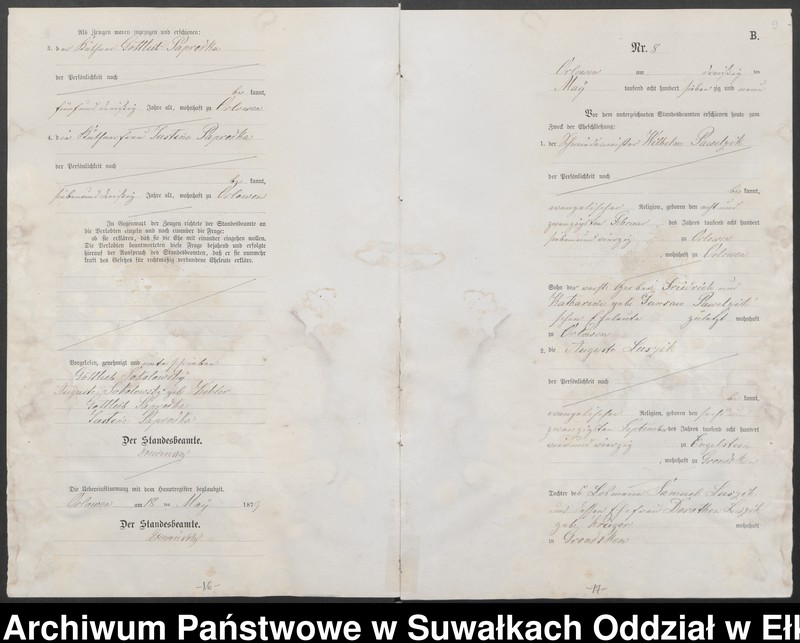 Als Zeugen waren zugezogen und erschienen:
3. der Käthner Gottlieb Paprotka
der Persönlichkeit nach
be kannt,
fünfunddreißig Jahre alt, wohnhaft zu Orlowen
4. die Käthnerfrau Justine Paprotka
der Persönlichkeit nach
be kannt,
siebenunddreißig Jahre alt, wohnhaft zu Orlowen
In Gegenwart der Zeugen richtete der Standesbeamte an
die Verlobten einzeln und nach einander die Frage:
ob sie erklären, daß sie die Ehe mit einander eingehen wollen.
Die Verlobten beantworteten diese Frage bejahend und erfolgte
hierauf der Ausspruch des Standesbeamten, daß er sie nunmehr
kraft des Gesetzes für rechtmäßig verbundene Eheleute erkläre.
Vorgelesen, genehmigt und unterschrieben
Gottlieb Sokolowsky
Auguste Sokolowsky geb.
Gottlieb Paprotka
Justine Paprotka
Der Standesbeamte.
Die Uebereinstimmung mit dem Hauptregister beglaubigt.
Orlowen am 18 ten May 1879
Der Standesbeamte.
-16-
9
B.
Nr. 8
Orlowen am dreißig ten
May tausend acht hundert sieben zig und neun
Vor dem unterzeichneten Standesbeamten erschienen heute zum
Zweck der Eheschließung:
1. der Schneidermeister Wilhelm Pawelzik
der Persönlichkeit nach
be kannt,
evangelischer Religion, geboren den acht und
zwanzigsten Februar des Jahres tausend acht hundert
siebenundvierzig zu Orlowen
, wohnhaft zu Orlowen
Sohn der Friedrich und
Katharine geb. Pawelzik
schen Eheleute zuletzt wohnhaft
in Orlowen
2. die Auguste Luszik
der Persönlichkeit nach
be kannt,
evangelischer Religion, geboren den sechs
zwanzigsten September des Jahres tausend acht hundert
vierzig zu Engelstein
, wohnhaft zu
Tochter des Losmann Samuel Luszik
und dessen Ehefrau Dorothea Luszik
geb. Krüger wohnhaft
in
-17-
Archiwum Państwowe w Suwałkach Oddział w Ełk